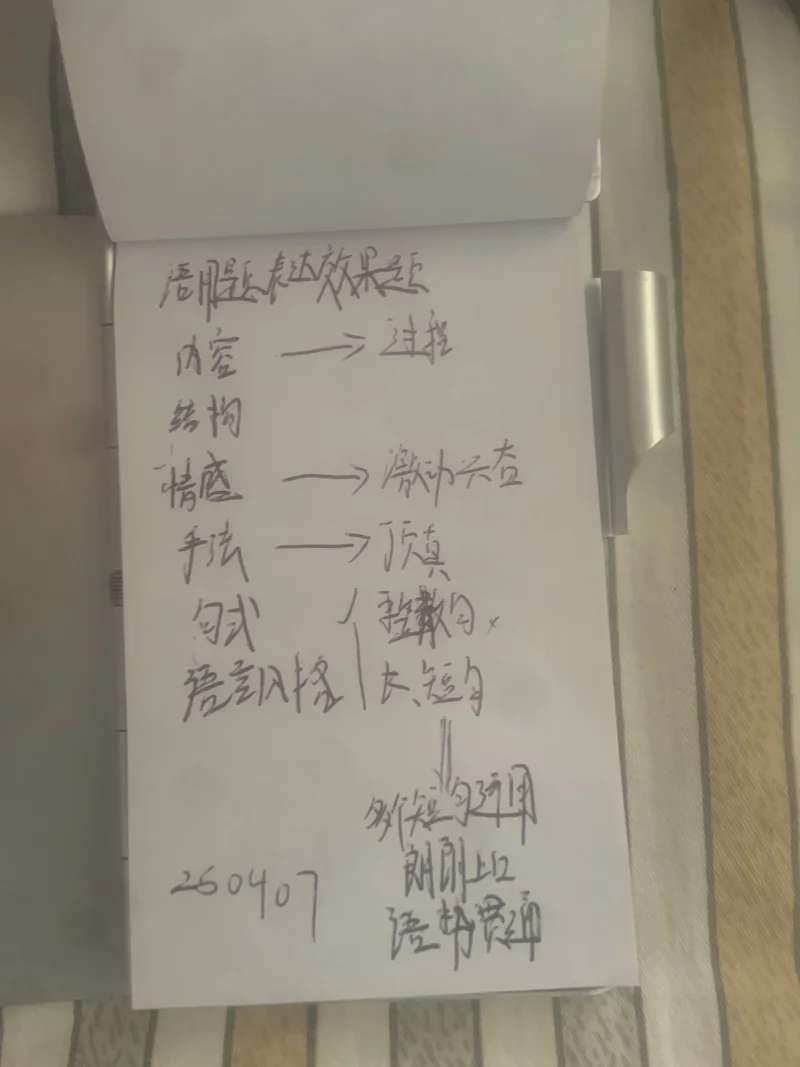 语用题表达效果题
内容 → 过程
结构
情感 → 激动兴奋
手法 → 顶真
句式 整散句、
语言风格 长、短句
多个短句运用
朗朗上口
语势贯通
260407